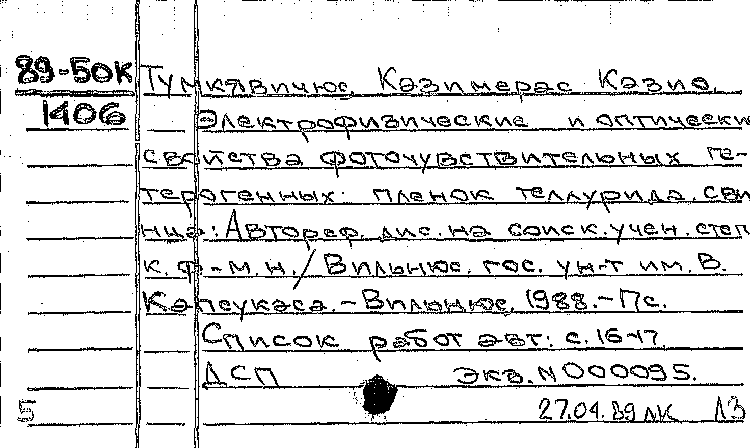 89-50К Тумкявичюс, Казимерас Казио.
1406 Электрофизические и оптически
свойства фоточувствительных ге-
терогенных пленок теллурида сви
нца: Автореф. дис. на соиск. учен. степ
к. ф.-м.н. / Вильнюс. гос. ун-т им. В.
Капсукаса. - Вильнюс, 1988. - 17с.
Список работ авт: с. 16-17
ДСП экз. N000095.
5 27.04.89 ЛК ЛЗ